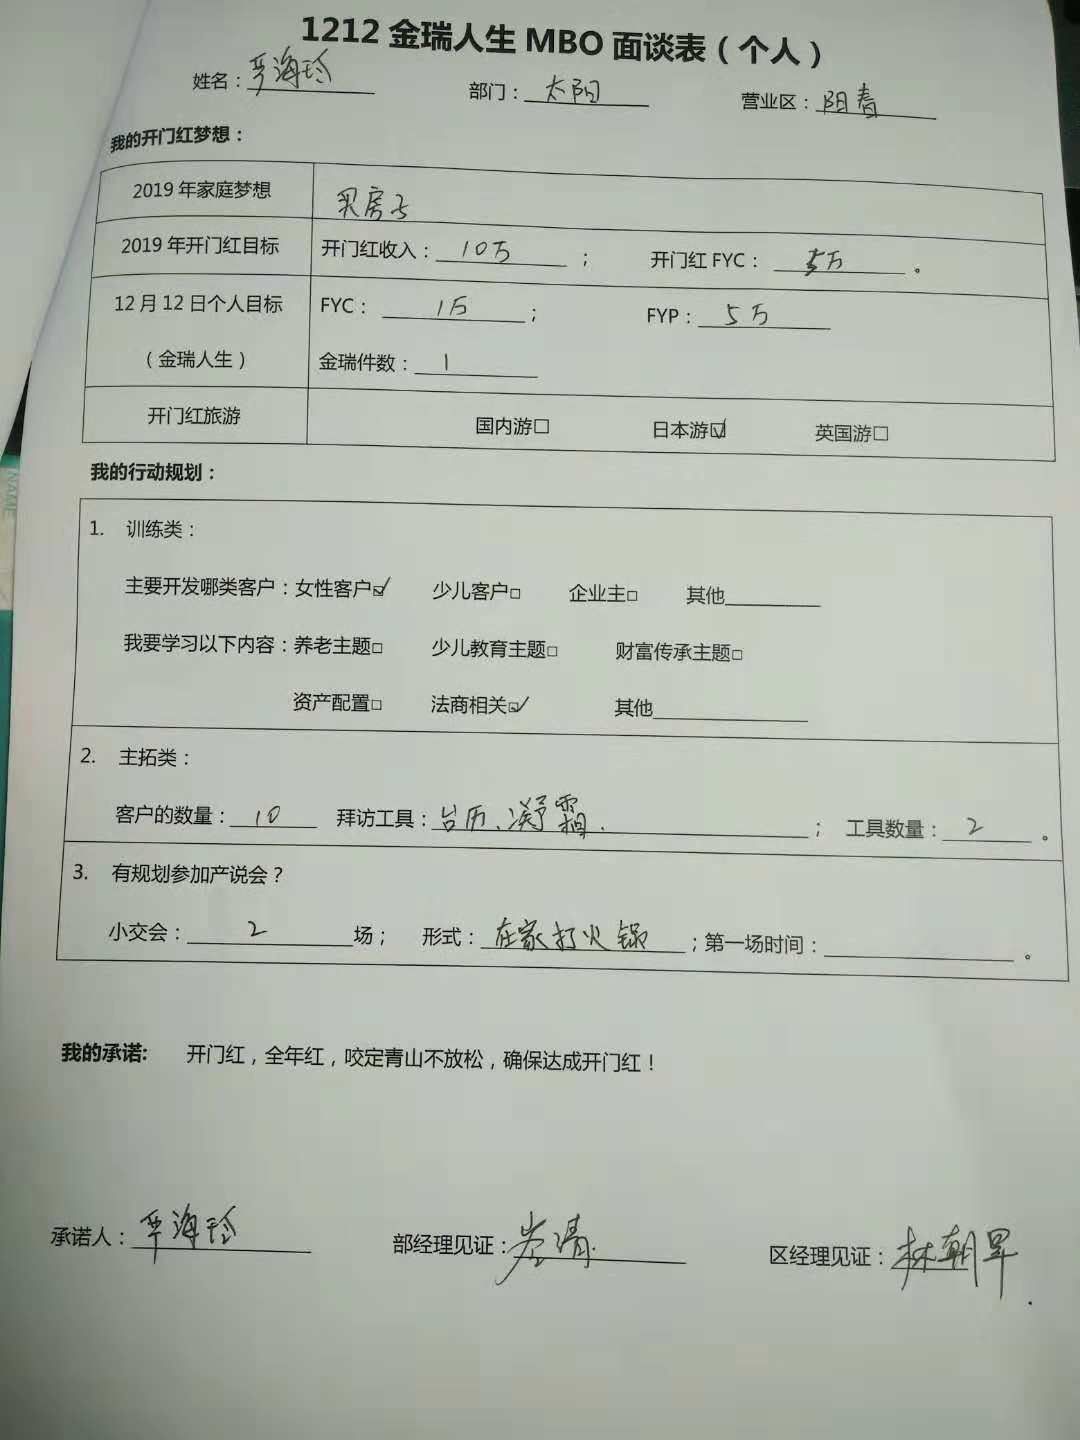 1212 金瑞人生 MBO 面谈表（个人）
姓名：严海玲 部门：太阳 营业区：阳春
我的开门红梦想：
2019 年家庭梦想 买房子
2019 年开门红目标 开门红收入：10万； 开门红 FYC：5万。
12 月 12 日个人目标 FYC：1万； FYP：5万
（金瑞人生） 金瑞件数：1
开门红旅游 国内游□ 日本游☑ 英国游□
我的行动规划：
1. 训练类：
主要开发哪类客户：女性客户☑ 少儿客户□ 企业主□ 其他
我要学习以下内容：养老主题□ 少儿教育主题□ 财富传承主题□
资产配置□ 法商相关☑ 其他
2. 主拓类：
客户的数量：10 拜访工具：台历、凝霜．； 工具数量：2。
3. 有规划参加产说会？
小交会：2场； 形式：在家打火锅；第一场时间：。
我的承诺: 开门红，全年红，咬定青山不放松，确保达成开门红！
承诺人：严海玲 部经理见证：清 区经理见证：林朝
NAME